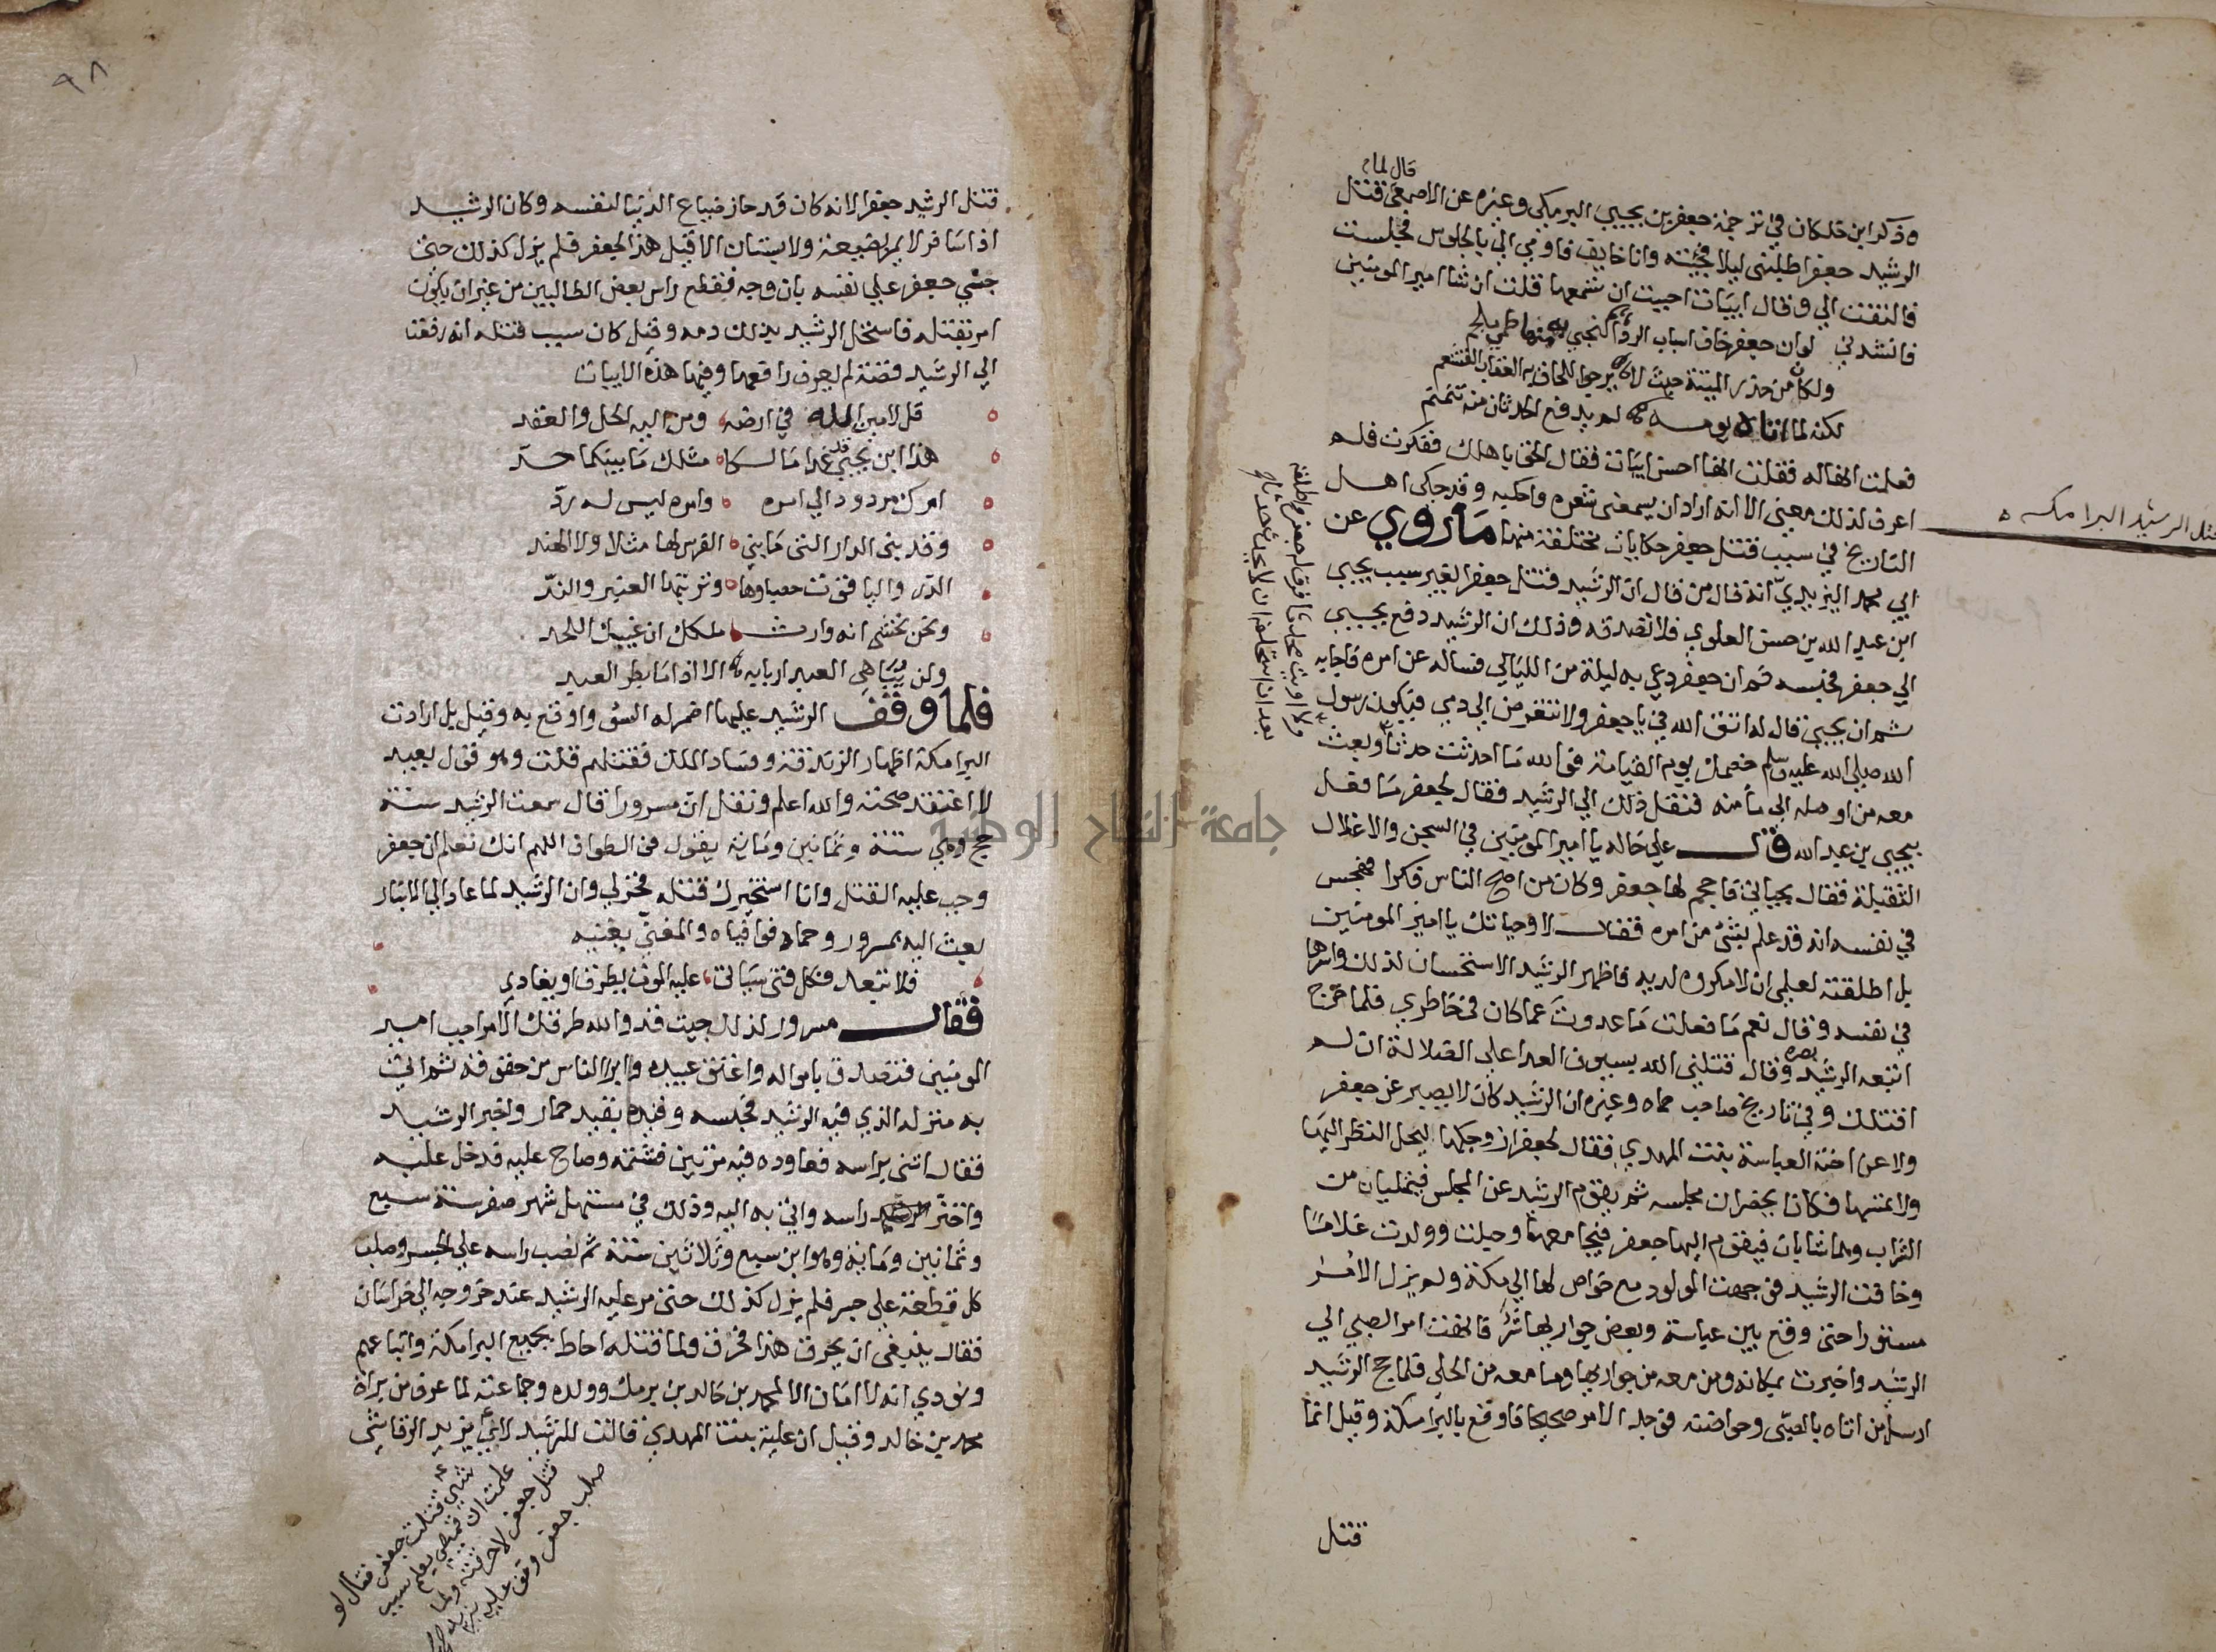 قال لما
وذكر ابن خلكان في ترجمة جعفر بن يحيي البرمكي وغيره عن الاصمعي قتل
الرشيد جعفرا طلبني ليلا فجئته وانا خايف فاومي الي بالجلوس فجلست
فالتفت الي وقال ابيات احببت ان تسمعها قلت ان شا امير المومنين
فانشدني لو ان جعفر خاف اسباب الردا لنجي به منها طمر ملجم
ولكان من حذر المنية حيث لا يرجوا اللحاق به العقاب القشعم
لكنه لما اتاه يومه لم يدفع الحدثان منه منجم
فعلمت انها له فقلت انها احسن ابيات فقال الحق باهلك ففكرت فلم
اعرف لذلك معني الا انه اراد ان يسمعني شعره واحكيه وقد حكي اهل
قتل الرشيد البرامكه
التاريخ في سبب قتل جعفر حكايات مختلفة منها ما روي عن
ابي محمد اليزيدي انه قال من قال ان الرشيد قتل جعفرا لغير سبب يحيي
ابن عبد الله بن حسن العلوي فلا تصدقه وذلك ان الرشيد دفع يحيي
الي جعفر فحبسه ثم ان جعفر دعي به ليلة من الليالي فساله عن امره فاجابه
ثم ان يحيي قال له اتق الله في يا جعفر ولا تتعرض الي دمي فيكون رسول
الله صلي الله عليه وسلم خصمك يوم القيامة فو الله ما احدثت حدثا وبعث
معه من اوصله الي مأمنه فنقل ذلك الي الرشيد فقال لجعفر ما فعل
بيحيي بن عبد الله قال علي حاله يا امير المومنين في السجن والاغلال
الثقيلة فقال بحياتي فاحجم لها جعفر وكان من اصح الناس فكرا فهجس
في نفسه انه قد علم بشئ من امره فقال لا وحياتك يا امير المومنين
بل اطلقته لعلمي ان لا مكروه لديه فاظهر الرشيد الاستحسان لذلك واسرها
في نفسه وقال نعم ما فعلت ما عدوت عما كان في خاطري فلما خرج
اتبعه الرشيد بصره وقال قتلني الله بسيوف العدا علي الضلالة ان لم
اقتلك وفي تاريخ صاحب حماه وغيره ان الرشيد كان لا يصبر عن جعفر
ولا عن اخته العباسة بنت المهدي فقال لجعفر ازوجكها ليحل النظر اليها
ولا تمسها فكانا يحضران مجلسه ثم يقوم الرشيد عن المجلس فيتمليان من
الشراب وهما شابان فيقوم اليها جعفر فيجامعها وحبلت وولدت غلاما
وخافت الرشيد فوجهت المولود مع خواص لها الي مكة ولم يزل الامر
مستورا حتي وقع بين عباسة وبعض جواريها شر فانهت امر الصبي الي
الرشيد واخبرت بمكانه ومن معه من جواريها وما معه من الحلي فلما حج الرشيد
ارسل من اتاه بالصبي وحواضنه فوجد الامر صحيحا فاوقع بالبرامكة وقيل انما
قتل
٩٨
قتل الرشيد جعفرا لانه كان قد حاز ضياع الدنيا لنفسه وكان الرشيد
اذا سافر لا يمر بضيعة ولا بستان الا قيل هذا لجعفر فلم يزل كذلك حتي
جني جعفر علي نفسه بان وجه فقطع راس بعض الطالبيين من غير ان يكون
امر بقتله فاستحل الرشيد بذلك دمه وقيل كان سبب قتله انه رفعت
الي الرشيد قصة لم يعرف رافعها وفيها هذه الابيات
قل لامين الله في ارضه ومن اليه الحل والعقد
هذا ابن يحيي قد غدا مالكا مثلك ما بينكما حد
امرك مردود الي امره وامره ليس له رد
وقد بني الدار التي ما بني الفرس لها مثلا ولا الهند
الدر والياقوت حصباوها وتربتها العنبر والند
ونحن نخشي انه وارث ملكك ان غيبك اللحد
ولن يباهي العبد اربابه الا اذا ما بطر العبد
فلما وقف الرشيد عليها اضمر له السو واوقع به وقيل بل ارادت
البرامكة اظهار الزندقة وفساد الملك فقتلهم قلت وهو قول بعيد
لا اعتقد صحته والله اعلم ونقل ان مسرورا قال سمعت الرشيد سنة
حج وهي سنة وثمانين وماية يقول في الطواف اللهم انك تعلم ان جعفر
وجب عليه القتل وانا استخيرك قتله فخر لي وان الرشيد لما عاد الي الانبار
بعث اليه بمسرور وحماد فوافياه والمغني يغنيه
فلا تبعد فكل فتي سياتي عليه الموت يطرق او يغادي
فقال مسرور لذلك جيت قد والله طرقك الامر اجب امير
المومنين فتصدق بامواله واعتق عبيده وابرا الناس من حقوقه ثم اتي
به منزله الذي فيه الرشيد فحبسه وقيده بقيد حمار واخبر الرشيد
فقال اتني براسه فعاوده فيه مرتين فشتمه وصاح عليه فدخل عليه
واحتز راسه واتي به اليه وذلك في مستهل شهر صفر سنة سبع
وثمانين وماية وهو ابن سبع وثلاثين سنة ثم نصب راسه علي الجسر وصلب
كل قطعة علي جسر فلم يزل كذلك حتي مر عليه الرشيد عند خروجه الي خراسان
فقال ينبغي ان يحرق هذا فحرق ولما قتله احاط بجميع البرامكة واتباعهم
ونودي انه لا امان الا لمحمد بن خالد بن برمك وولده وجماعته لما عرف من براة
محمد بن خالد وقيل ان علية بنت المهدي قالت للرشيد
شي قتلت جعفر فقال لو
علمت ان قميصي يعلم سبب
قتل جعفر لاحرقته ولما
صلب جعفر وقف عليه يزيد
جامعة النجاح الوطنية